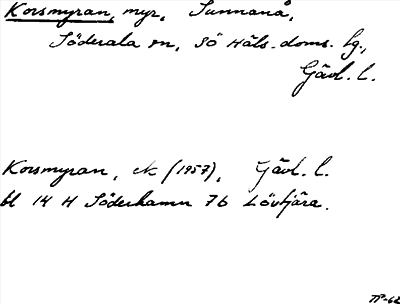 Korsmyran, myr, Sunnanå,
Söderala sn, Sö Häls. doms. lg.,
Gävl. l.
Korsmyran, ek (1957), Gävl. l.
bl 14 H Söderhamn 7b Lövtjära.